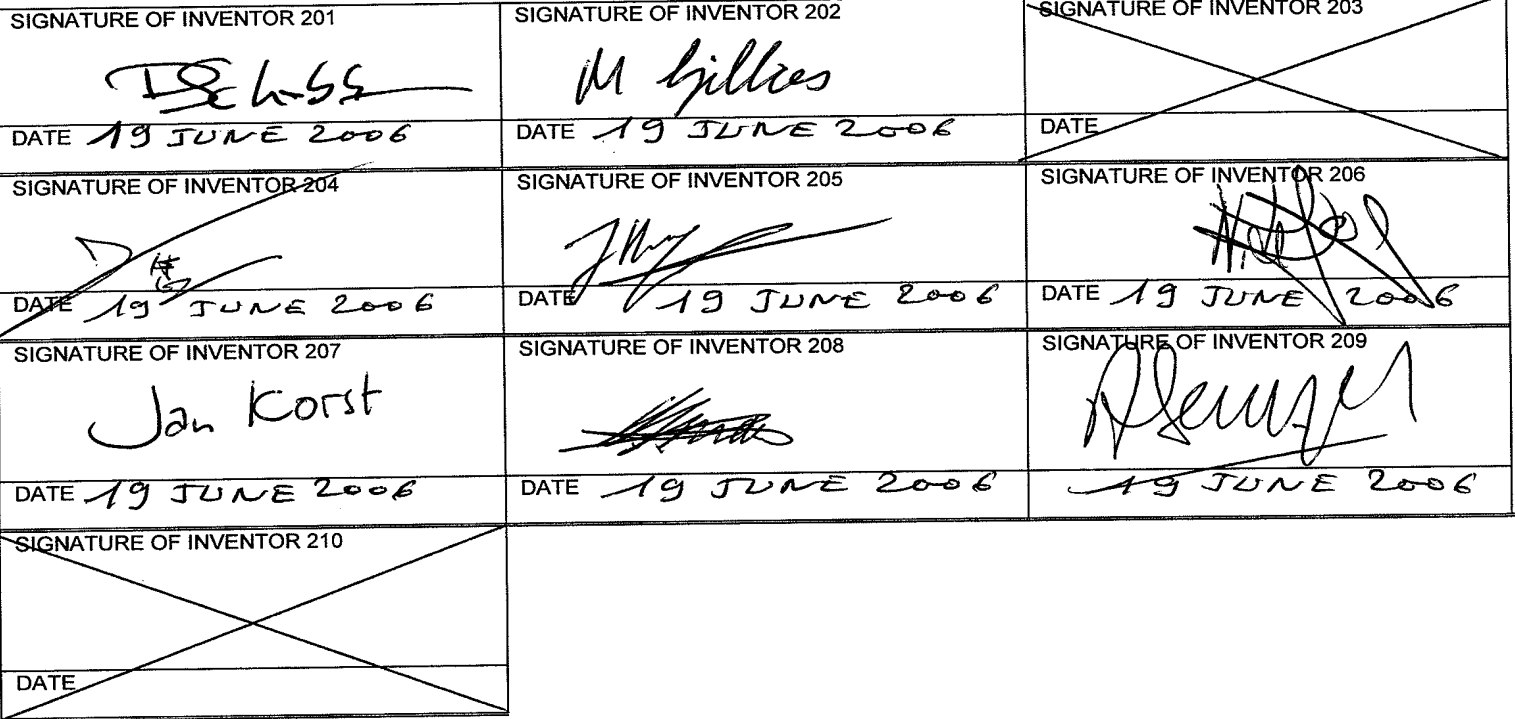 SIGNATURE OF INVENTOR 201
SIGNATURE OF INVENTOR 202
SIGNATURE OF INVENTOR 203
M Gillies
DATE 19 JUNE 2006
DATE 19 JUNE 2006
DATE
SIGNATURE OF INVENTOR 204
SIGNATURE OF INVENTOR 205
SIGNATURE OF INVENTOR 206
DATE 19 JUNE 2006
DATE 19 JUNE 2006
DATE 19 JUNE 2006
SIGNATURE OF INVENTOR 207
SIGNATURE OF INVENTOR 208
SIGNATURE OF INVENTOR 209
Jan Korst
DATE 19 JUNE 2006
DATE 19 JUNE 2006
19 JUNE 2006
SIGNATURE OF INVENTOR 210
DATE